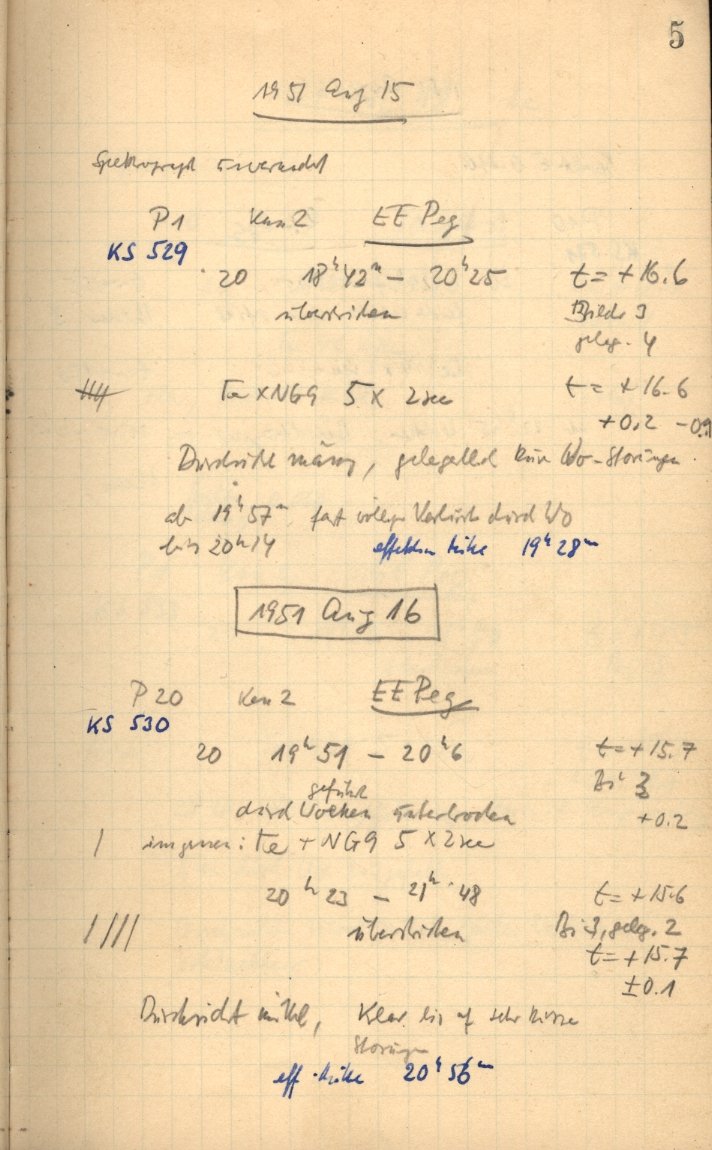 5
1951 Aug 15
Spektrograph
P1 Kam 2 EE Peg
KS 529
20 18ʰ42ᵐ – 20ʰ25 t = +16.6
überstrichen Bilder 3
geleg. 4
Fe + NG9 5 x 2sec t = +16.6
+0.2 –0.1
Durchsicht mässig, gelegentlich kurze Wo-Störungen.
ab 19ʰ57ᵐ fast völliger Verlust durch Wo
bis 20ʰ14 effektive Mitte 19ʰ28ᵐ
1951 Aug 16
P20 Kam 2 EE Peg
KS 530
20 19ʰ51 – 20ʰ6 t = +15.7
geführt Bi 3
durch Wolken unterbrochen +0.2
insgesamt: Fe + NG9 5 x 2sec
20ʰ23 – 21ʰ48 t = +15.6
überstrichen Bi 3, geleg. 2
t = +15.7
±0.1
Durchsicht mittel, Klar bis auf sehr kurze
Störungen
eff. Mitte 20ʰ56ᵐ